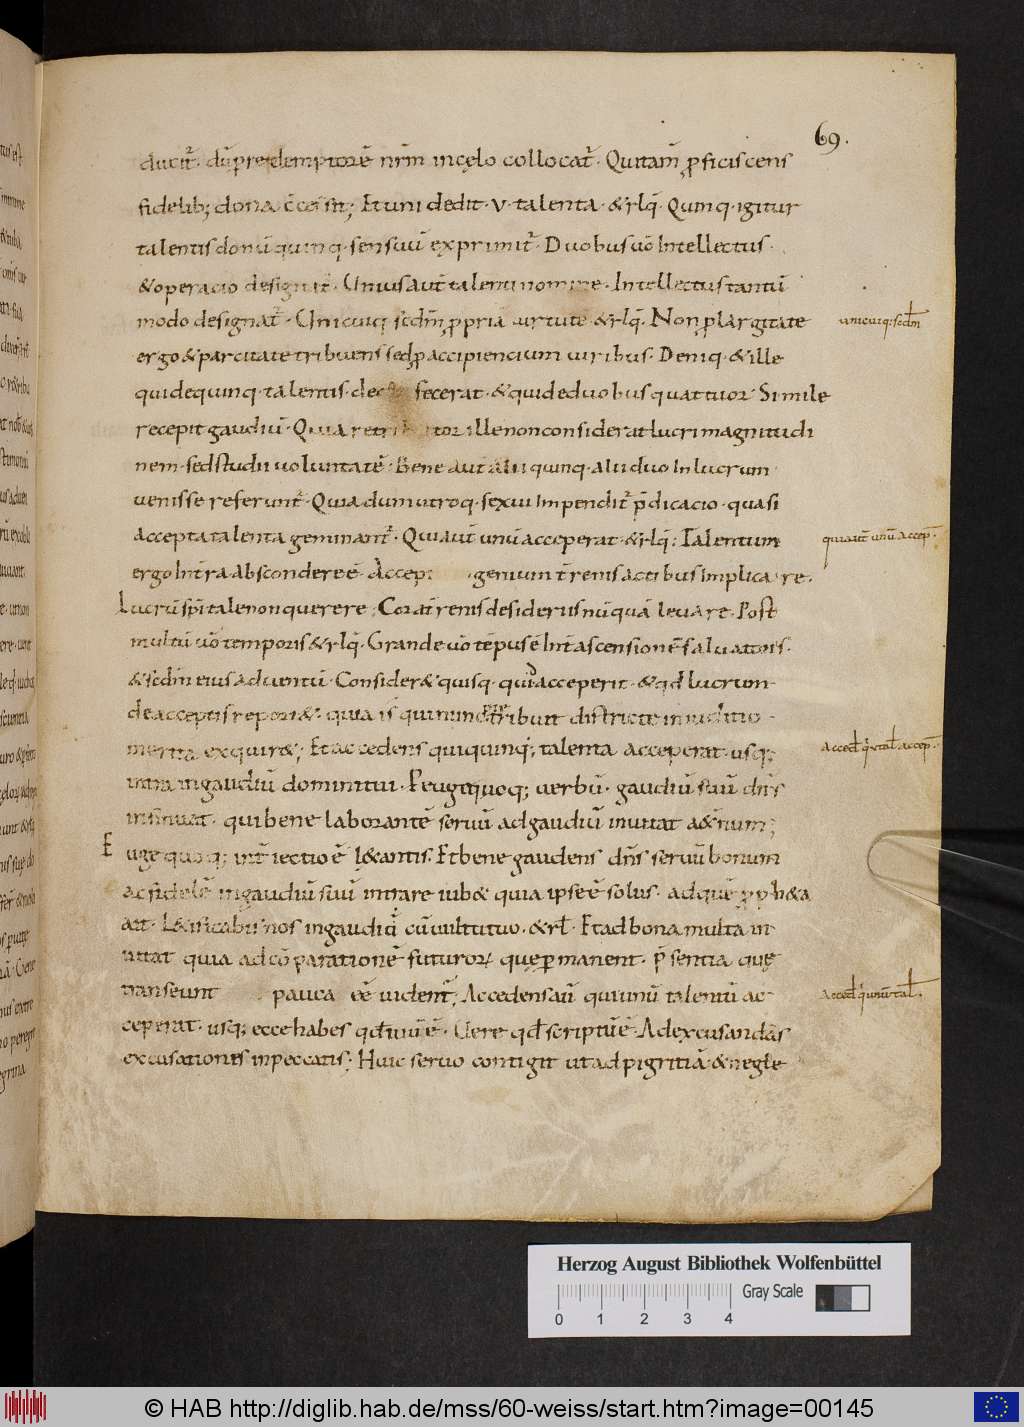 69.
ducit̄. dū p redemptorē nr̄m in cęlo collocat̄. Qui tam̄ p ficiscens
fidelib; dona cc̄essit; Et uni dedit. v. talenta. & rłq̄. Quinq. igitur
talentis donū quinq. sensuū exprimit̄. Duobus ūo Intellectus.
& operacio designat̄. Unius aūt talenti nomine. Intellectus tantū
modo designat̄. Unicuiq scdm̄ p pria uirtute & rłq̄. Non p largitate
unicuiq; scdm̄
ergo & parcitate tribuens sed p accipiencium uiribus. Deniq. & ille
qui de quinq. talentis. dece fecerat. & qui de duobus quattuor Simile
recepit gaudiū. Quia retributor ille non considerat lucri magnitudi
nem. sed studii uoluntatē. Bene aūt alii quinq. alii duo In lucrum
uenisse referunt̄. Quia dum utroq. sexui Impendit̄ p̄dicacio. quasi
accepta talenta geminant̄. Qui aūt unū acceperat. & rłq̄: Talentum
qui aūt unū accep̄.
ergo In t̄ra abscondere ē. Accep ingenium t̄renis actibus Implicare.
Lucrū spi̅tale non querere; Cor a t̄renis desideriis nūquā leuare. Post
multū ūo temporis & rłq̄. Grande ūo tēpus ē Int̄ ascensionē saluatoris.
& scdm̄ eius aduentū. Consider& quisq. quid acceperit. & qd lucrum
de acceptis report&. quia is qui nunc tribuit districte in iuditio
merita exquir&; Et accedens qui quinq; talenta acceperat. usq;
acced qi tal accep̄.
intra in gaudiū domini tui. Peuge quoq; uerbū. gaudiū suū dn̄s
insinuat. qui bene laborantē seruū ad gaudiū inuitat aet̄num;
Euge quoq; int̄iectio ē l&antis. Et bene gaudens dn̄s seruū bonum
ac fidelē in gaudiū suū intrare iub& quia ipse ē solus. ad quē pph&a
ait. L&ificabis nos in gaudio cū uultu tuo. & rł. Et ad bona multa in
uitat quia ad cōparationē futurorꝝ quę p manent. p̄sentia quę
transeunt pauca eē uident̄; Accedens aū qui unū talentū ac
acced qi unū tal.
ceperat. usq; ecce habes qd tuū ē. Uere qd scriptū ē. Ad excusandas
excusationes in peccatis; Huic seruo contigit ut ad pigritiā & negle
Herzog August Bibliothek Wolfenbüttel
Gray Scale
0 1 2 3 4
© HAB http://diglib.hab.de/mss/60-weiss/start.htm?image=00145